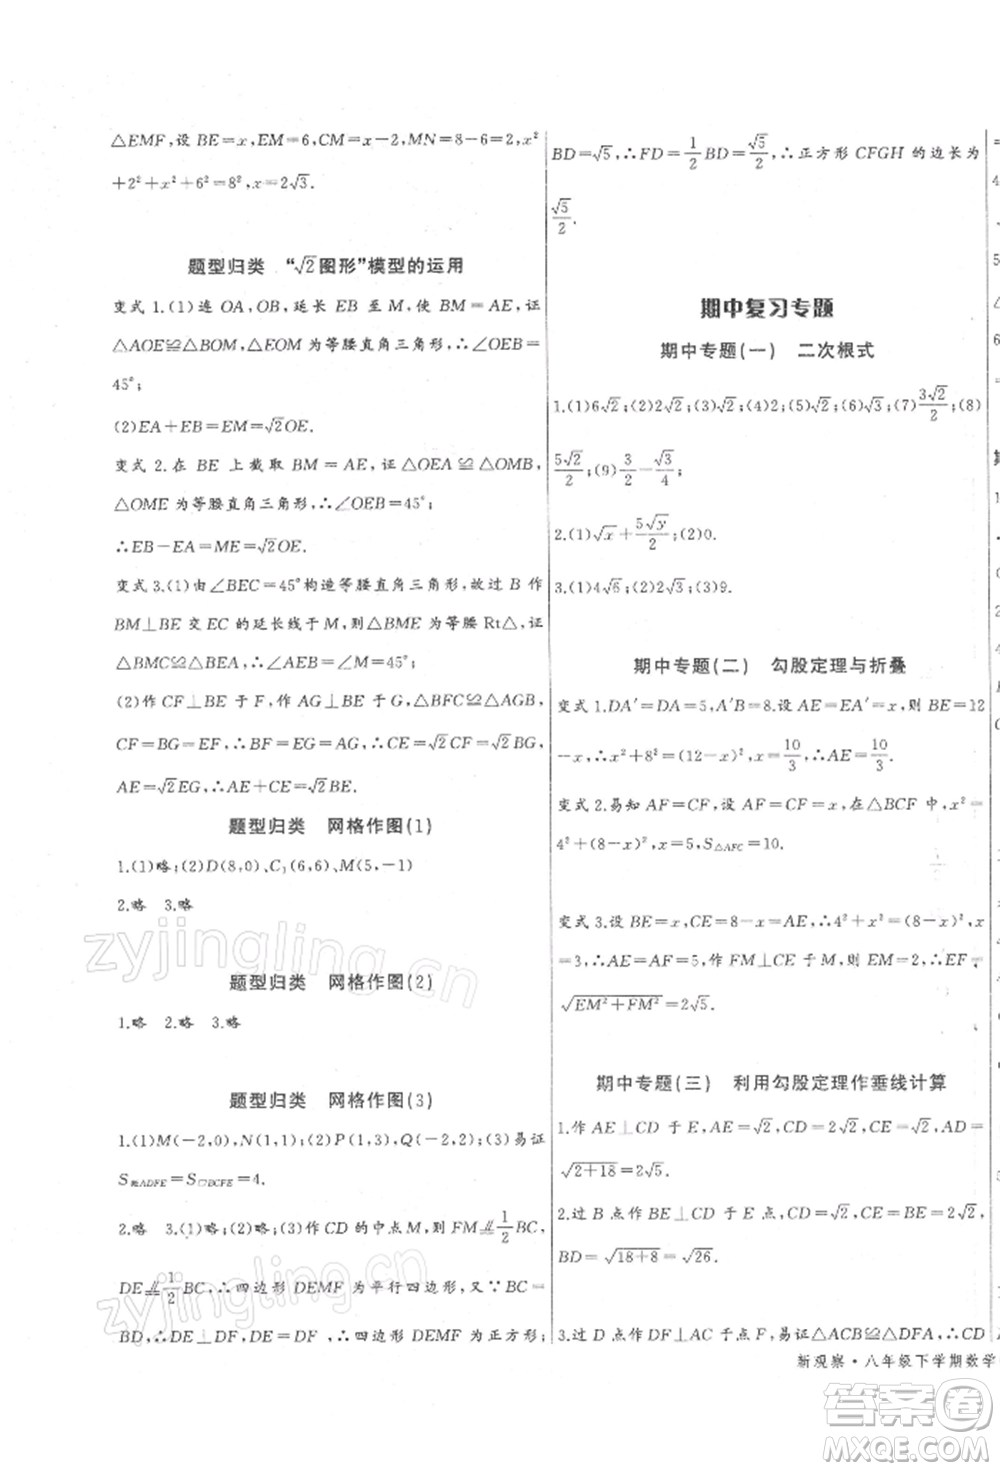 △EMF,设 BE=x,EM=6,CM=x-2,MN=8-6=2,x²
+2²+x²+6²=8²,x=2√3.
题型归类 “√2图形”模型的运用
变式 1.(1)连 OA,OB,延长 EB 至 M,使 BM=AE,证
△AOE≌△BOM,△EOM为等腰直角三角形,∴∠OEB=
45°;
(2)EA+EB=EM=√2OE.
变式 2.在 BE 上截取 BM=AE,证△OEA≌△OMB,
△OME为等腰直角三角形,∴∠OEB=45°,
∴EB-EA=ME=√2OE.
变式 3.(1)由∠BEC=45°构造等腰直角三角形,故过 B 作
BM⊥BE 交 EC 的延长线于 M,则△BME 为等腰 Rt△,证
△BMC≌△BEA,∴∠AEB=∠M=45°;
(2)作 CF⊥BE 于 F,作 AG⊥BE 于 G,△BFC≌△AGB,
CF=BG=EF,∴BF=EG=AG,∴CE=√2CF=√2BG,
AE=√2EG,∴AE+CE=√2BE.
题型归类 网格作图(1)
1.(1)略;(2)D(8,0)、C₁(6,6)、M(5,-1)
2.略 3.略
题型归类 网格作图(2)
1.略 2.略 3.略
题型归类 网格作图(3)
1.(1)M(-2,0),N(1,1);(2)P(1,3),Q(-2,2);(3)易证
=4.
2.略 3.(1)略;(2)略;(3)作 CD 的中点 M,则 FM⫽1/2BC,
DE⫽1/2BC,∴四边形 DEMF 为平行四边形,又∵BC=
BD,∴DE⊥DF,DE=DF,∴四边形 DEMF 为正方形;
BD=√5,∴FD=1/2BD=√5/2,∴正方形 CFGH 的边长为
√5/2.
期中复习专题
期中专题(一) 二次根式
1.(1)6√2;(2)2√2;(3)√2;(4)2;(5)√2;(6)√3;(7)3√2/2;(8)
5√2/2;(9)3/2-√3/4;
2.(1)√x+5√y/2;(2)0.
3.(1)4√6;(2)2√3;(3)9.
期中专题(二) 勾股定理与折叠
变式 1.DA′=DA=5,A′B=8.设 AE=EA′=x,则 BE=12
-x,∴x²+8²=(12-x)²,x=10/3,∴AE=10/3.
变式 2.易知 AF=CF,设 AF=CF=x,在△BCF 中,x²=
4²+(8-x)²,x=5,S△AFC=10.
变式 3.设 BE=x,CE=8-x=AE,∴4²+x²=(8-x)²,x
=3,∴AE=AF=5,作 FM⊥CE 于 M,则 EM=2,∴EF=
√(EM²+FM²)=2√5.
期中专题(三) 利用勾股定理作垂线计算
1.作 AE⊥CD 于 E,AE=√2,CD=2√2,CE=√2,AD=
√(2+18)=2√5.
2.过 B 点作 BE⊥CD 于 E 点,CD=√2,CE=BE=2√2,
BD=√(18+8)=√26.
3.过 D 点作 DF⊥AC 于点 F,易证△ACB≌△DFA,∴CD
新观察·八年级下学期数学
zyjingling.cn
zyjingling.cn
答案卷
MXQE.COM